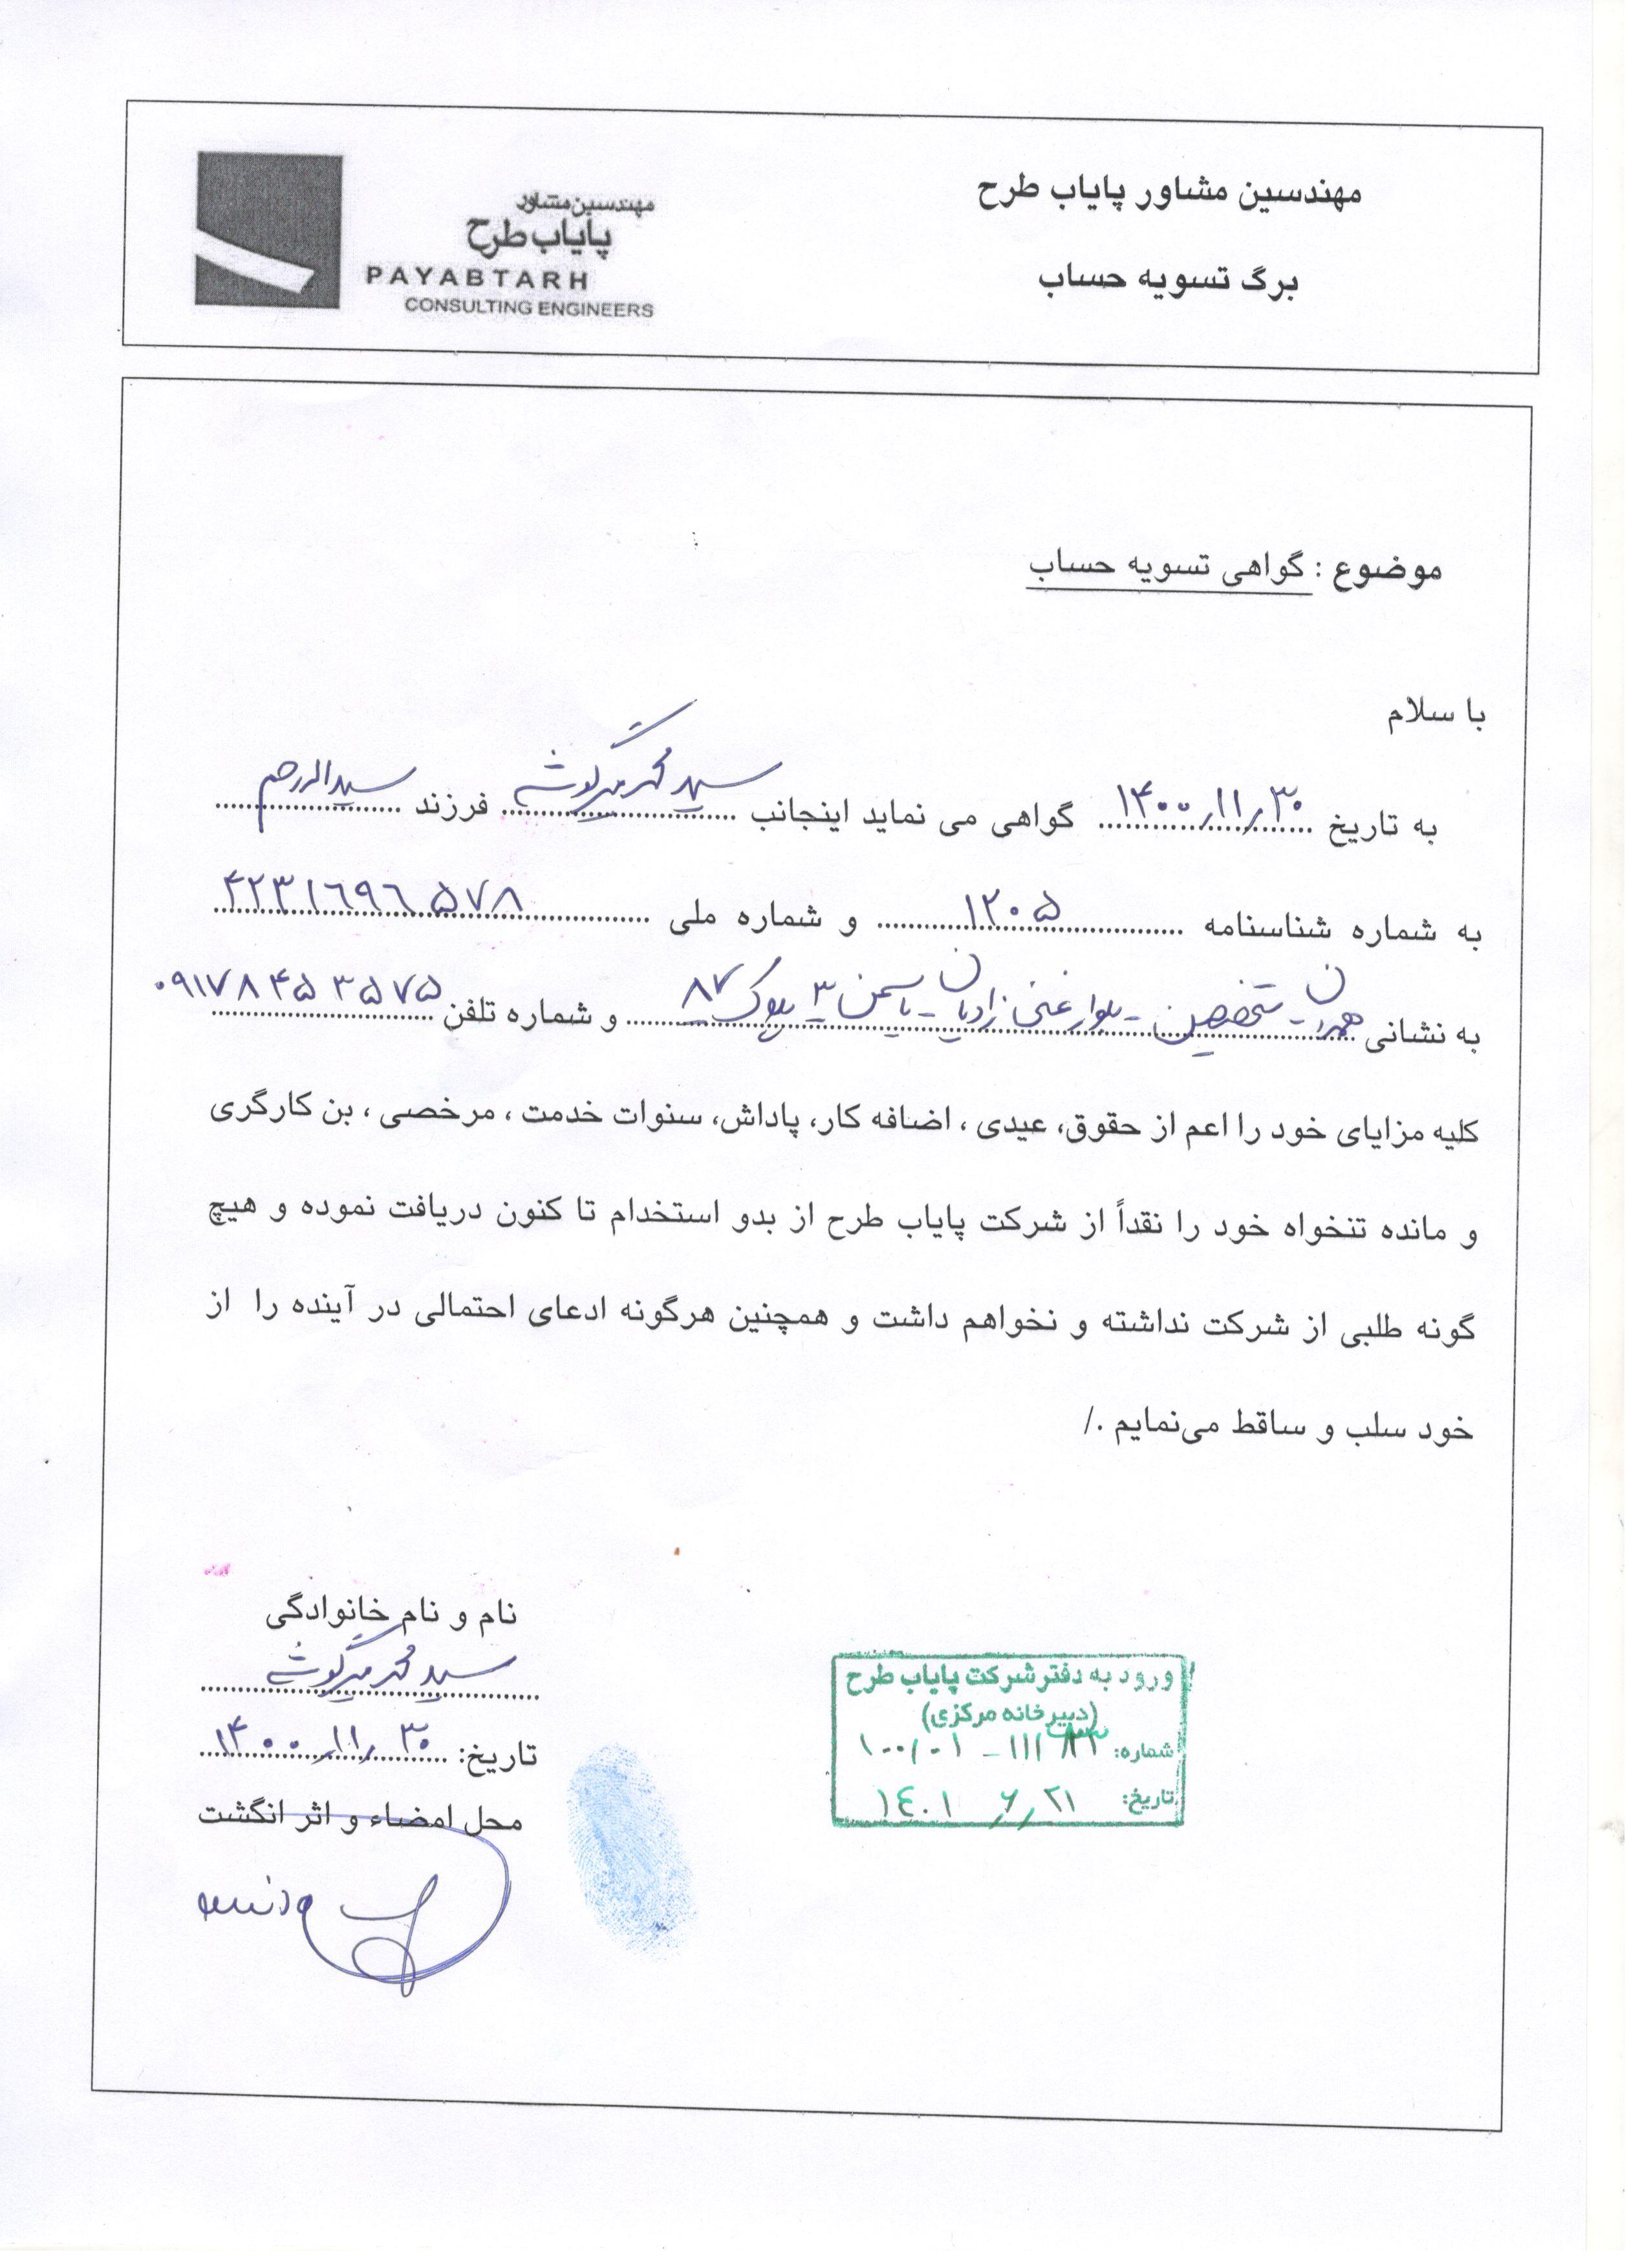 مهندسین مشاور پایاب طرح
برگ تسویه حساب
مهندسین مشاور
پایاب طرح
PAYABTARH
CONSULTING ENGINEERS
موضوع : گواهی تسویه حساب
با سلام
به تاریخ ۱۴۰۰/۱۱/۳۰ گواهی می نماید اینجانب سید محمد میرگوشه فرزند
به شماره شناسنامه ۱۲۰۵ و شماره ملی ۴۲۳۱۶۹۶۵۷۸
به نشانی - متخصصین - بلوار - یاسمن ۳ پلاک ۸۷ و شماره تلفن ۰۹۱۷۸۴۵۳۵۷۵
کلیه مزایای خود را اعم از حقوق، عیدی ، اضافه کار، پاداش، سنوات خدمت ، مرخصی ، بن کارگری
و مانده تنخواه خود را نقداً از شرکت پایاب طرح از بدو استخدام تا کنون دریافت نموده و هیچ
گونه طلبی از شرکت نداشته و نخواهم داشت و همچنین هرگونه ادعای احتمالی در آینده را از
خود سلب و ساقط می‌نمایم ./
نام و نام خانوادگی
سید محمد میرگوشه
تاریخ: ۱۴۰۰/۱۱/۳۰
محل امضاء و اثر انگشت
ورود به دفتر شرکت پایاب طرح
(دبیرخانه مرکزی)
شماره:
تاریخ: ۱۴۰۱/۶/۲۱